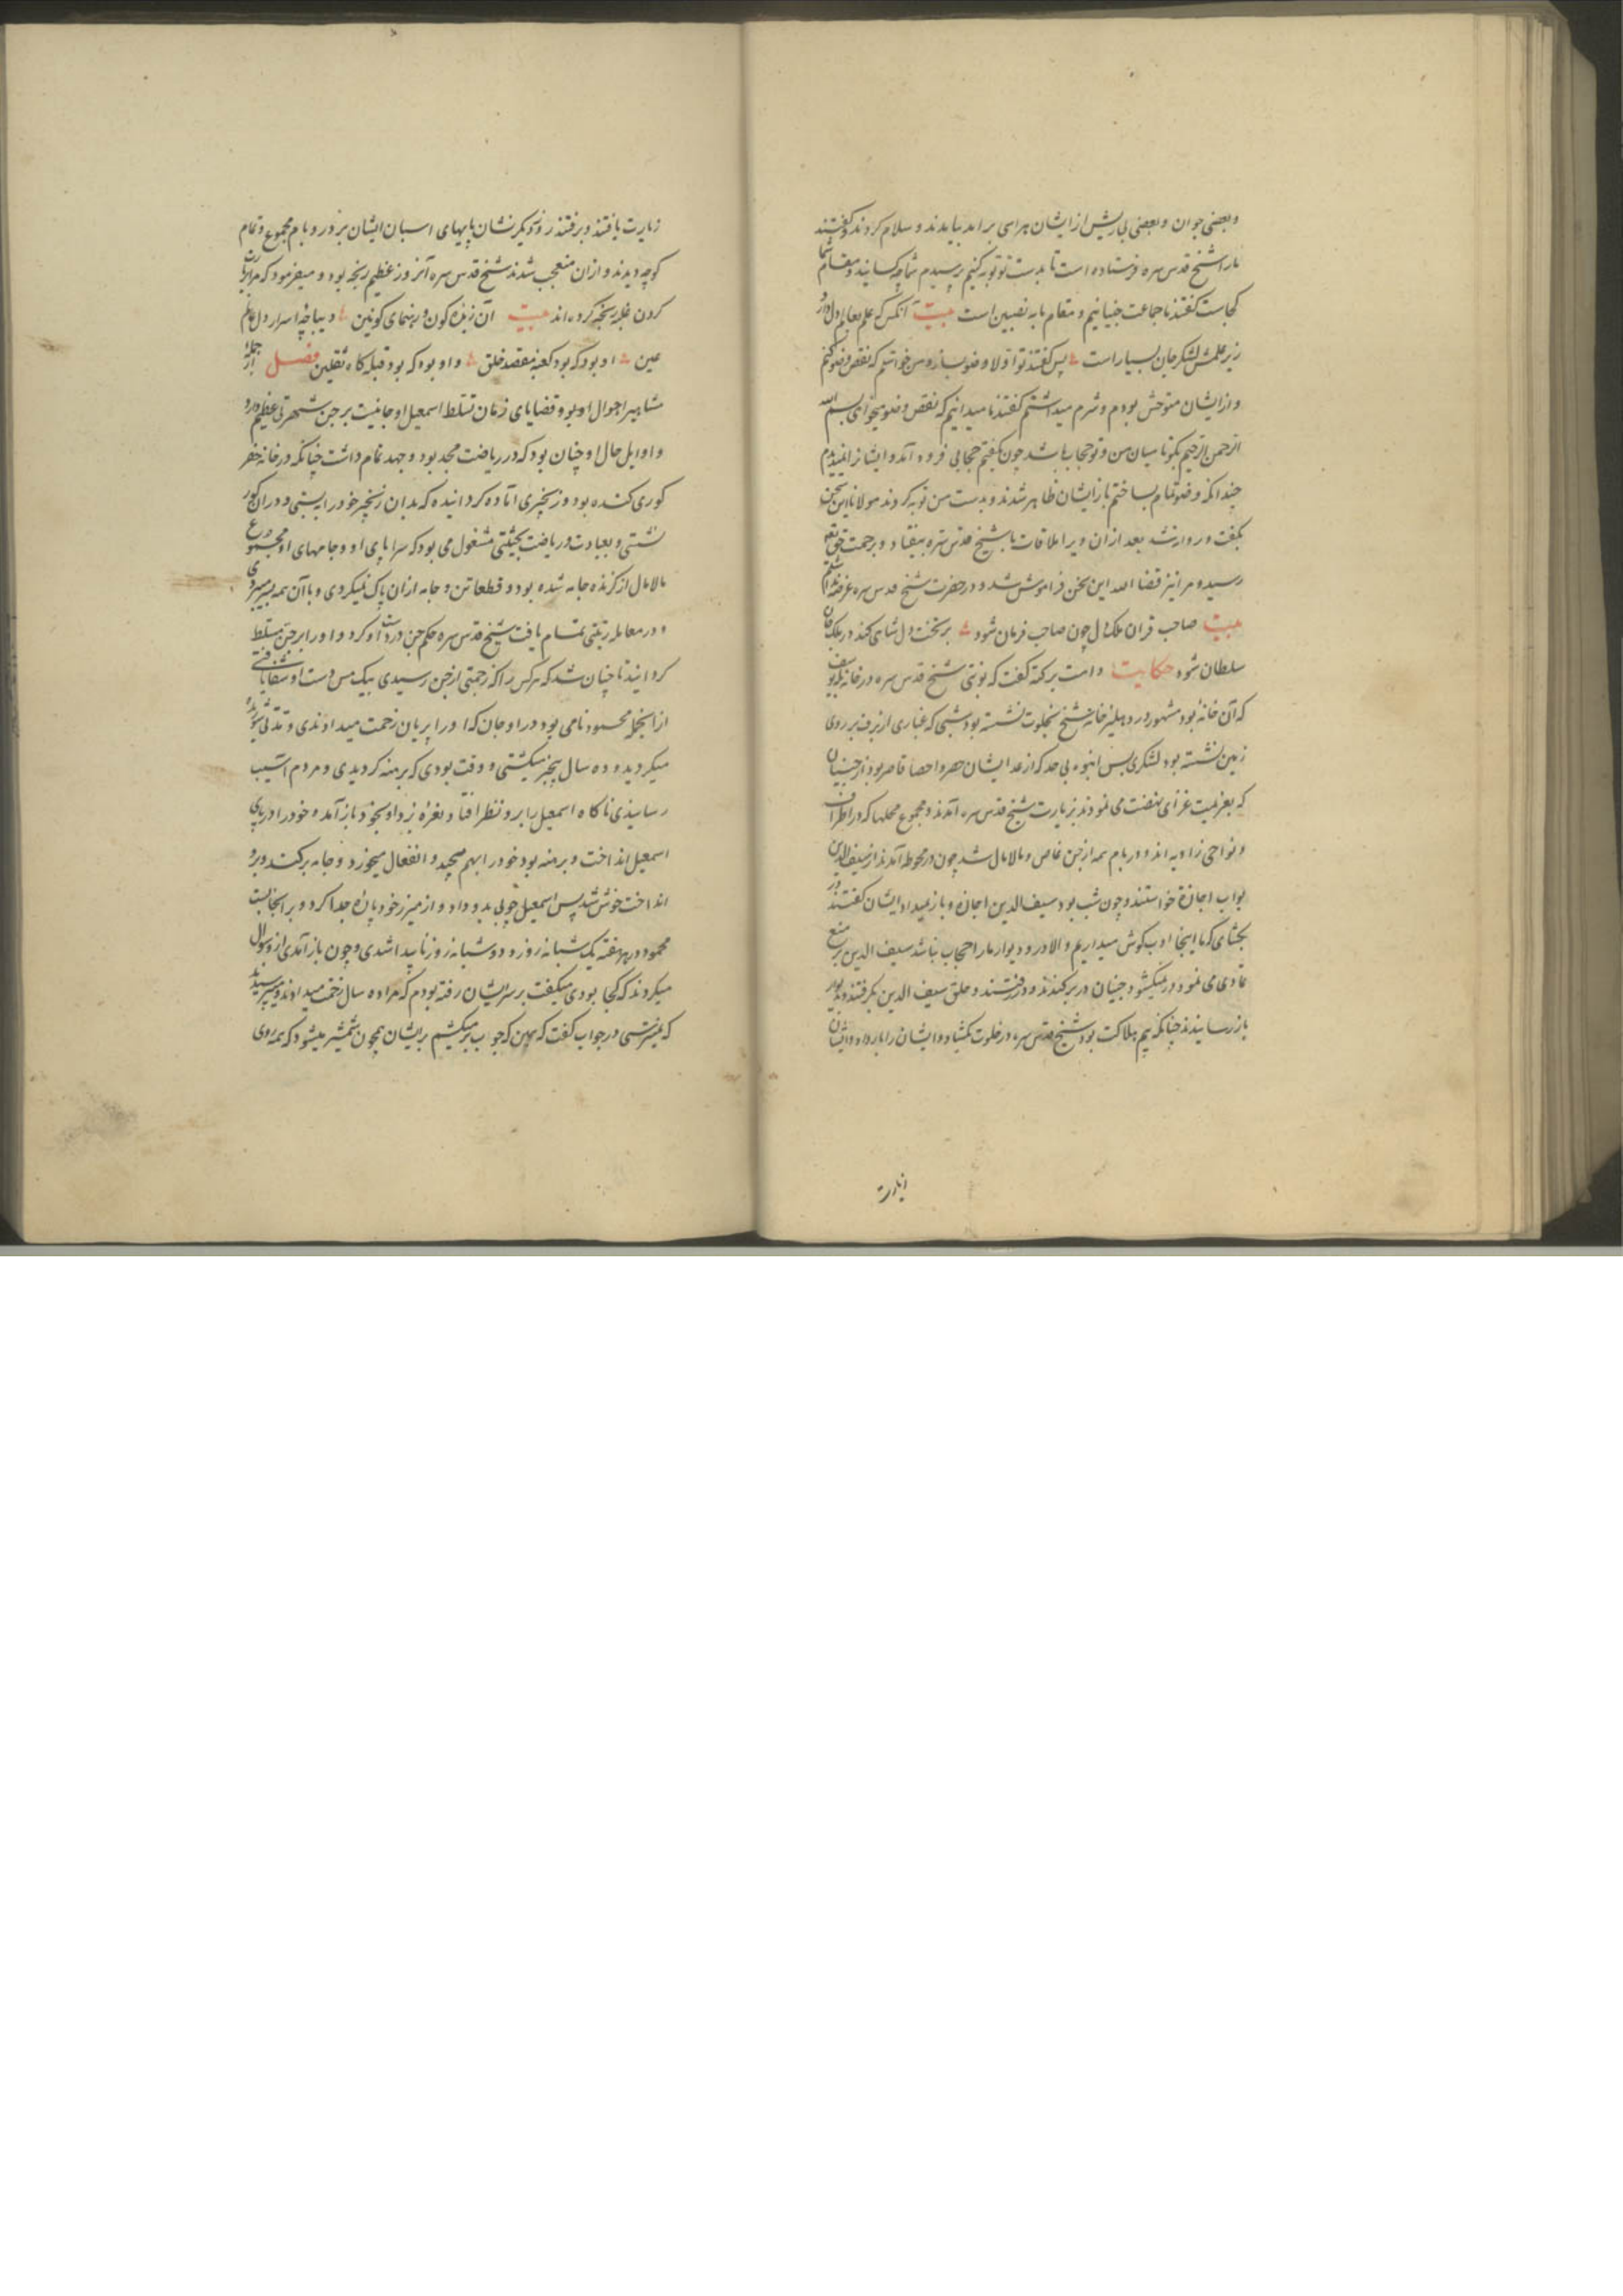 وبعضی جوان وبعضی بی ریش از ایشان هراسی بر آمد بیامدند و سلام کردند و گفتند
مارا شیخ قدس سره فرستاده است تا بدست تو توبه کنیم پرسیدم شما چه کسانید و مقام شما
کجاست گفتند ما جماعت جنیانیم و مقام ما به نصیبین است بیت آنکس که علم بعالم دل زد
زیر علمش لشکر جان بسیار است پس گفتند تو اولا وضو بساز و من خواستم که نقض وضو کنم
و از ایشان متوحش بودم و شرم میداشتم گفتند ما میدانیم که نقض وضو میخواهی بسم الله
الرحمن الرحیم بگو تا میان من و تو حجاب باشد چون بگفتم حجابی فرود آمد و ایشانرا ندیدم
چندانکه وضو تمام بساختم باز ایشان ظاهر شدند و بدست من توبه کردند مولانا این سخن
بگفت و روانه شد بعد از آن ویرا ملاقات با شیخ قدس سره نیفتاد و برحمت حق تعالی
رسید و مرا نیز قضاء الله این سخن فراموش شد و در حضرت شیخ قدس سره عرضه نداشتم
بیت صاحب قران ملک دل چون صاحب فرمان شود بر تخت دل شاهی کند در ملک جان
سلطان شود حکایت دامت برکته گفت که نوبتی شیخ قدس سره در خانه یوسف
که آن خانه بود مشهور در دهلیز خانه شیخ بخلوت نشسته بود شبی که غباری از برف بر روی
زمین نشسته بود لشکری بس انبوه بی حد که از عد ایشان حصر و احصا قاصر بود از جنیان
که بعزیمت غزای نهضت می نمودند بزیارت شیخ قدس سره آمدند و مجموع محلها که در اطراف
و نواحی زاویه اند و در بام همه از جن غاص و مالامال شد چون در محوطه آمدند از سیف الدین
بواب اجازة خواستند و چون شب بود سیف الدین اجازه و بار نمیداد ایشان گفتند در
بگشای که ما اینجا ادب گوش میداریم و الا در و دیوار ما را حجاب نباشد سیف الدین بر منع
تمادی می نمود در نمیگشود جنیان در بر کندند و در رفتند و حلق سیف الدین بگرفتند و بدیوار
باز رسانیدند چنانکه بیم هلاکت بود شیخ قدس سره در خلوت بگشاد و ایشان را بار داد و ایشان
زیارت
زیارت یافتند و برفتند روز دیگر نشان پایهای اسبان ایشان بر در و بام مجموع و تمام
کوچه دیدند و از آن متعجب شدند شیخ قدس سره آن روز عظیم رنجه بود و میفرمود که مرا زیارت
کردن غلبه رنجه کرده اند بیت آن زبده کون و رهنمای کونین دیباچه اسرار دل عالم
عین او بود که بود کعبه مقصد خلق و او بود که بود قبله گاه ثقلین فصل از جمله
مشاهیر احوال او بود و قضایای زمان تسلط اسمعیل اوجانیت بر جن شهرتی عظیم دارد
و اوایل حال او چنان بود که در ریاضت مجد بود و جهد تمام داشت چنانکه در خانه حفر
کوری کنده بود و زنجیری آماده گردانیده که بدان زنجیر خود را ببستی و در آن گور
نشستی و بعبادت و ریاضت بحیثیتی مشغول می بود که سراپای او و جامهای او مجموع
مالامال از گزنده جامه شده بود و قطعا تن و جامه از آن پاک نمیکردی و با آن همه بسر میبردی
و در معامله رتبتی تمام یافت شیخ قدس سره حکم جن در دست او کرد و او را بر جن مسلط
گردانید تا چنان شد که هر کس را که زحمتی از جن رسیدی بیک مس دست او شفا یافتی
از آنجمله محمود نامی بود در اوجان که او را پریان زحمت میدادندی و مدتی شوریده
میگردید و ده سال بیخبر میگشتی و وقت بودی که برهنه گردیدی و مردم آسیب
رسانیدی ناگاه اسمعیل را بر و نظر افتاد نعره زد او بخود باز آمد و خود را در پای
اسمعیل انداخت و برهنه بود خود را بهم میپیچید و انفعال میخورد و جامه بر کند و برو
انداخت خوش شد پس اسمعیل چوبی بدو داد و از میزر خود پاره جدا کرد و بر آنجا بست
محمود در هر هفته یک شبانه روز و دو شبانه روز ناپیدا شدی و چون باز آمدی از و سوال
میکردند که کجا بودی میگفت بر سر ایشان رفته بودم که مرا ده سال زحمت میدادند میپرسیدند
که نمیترسی در جواب گفت که بهین که چوب بر میکشم بر ایشان همچون شمشیر میشود که همه روی